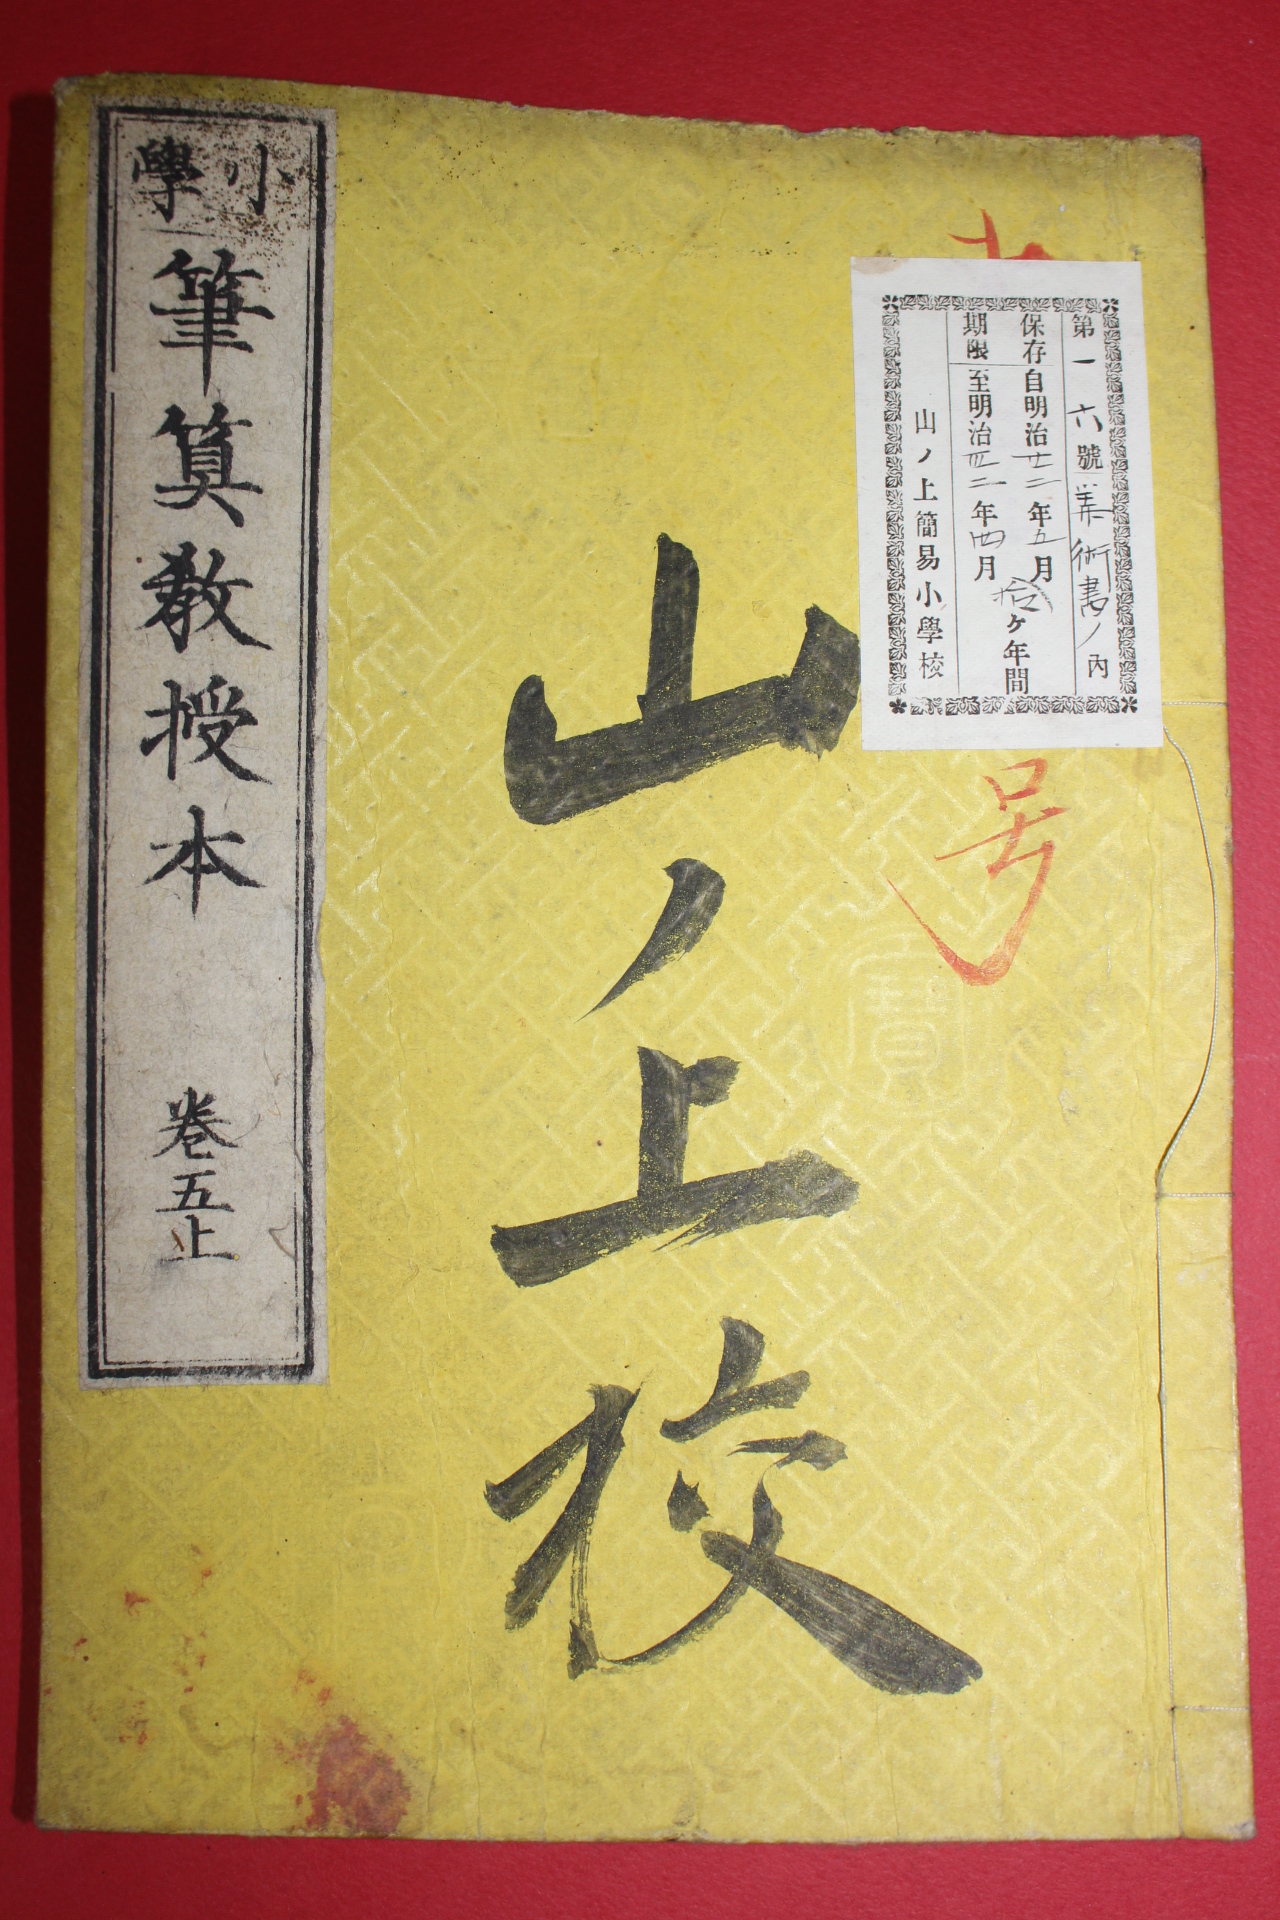 小學
筆算教授本
巻五止
山ノ上校
号
第一六號 美術書ノ内
保存自明治廿二年五月
期限至明治四二年四月
拾ヶ年間
山ノ上簡易小學校